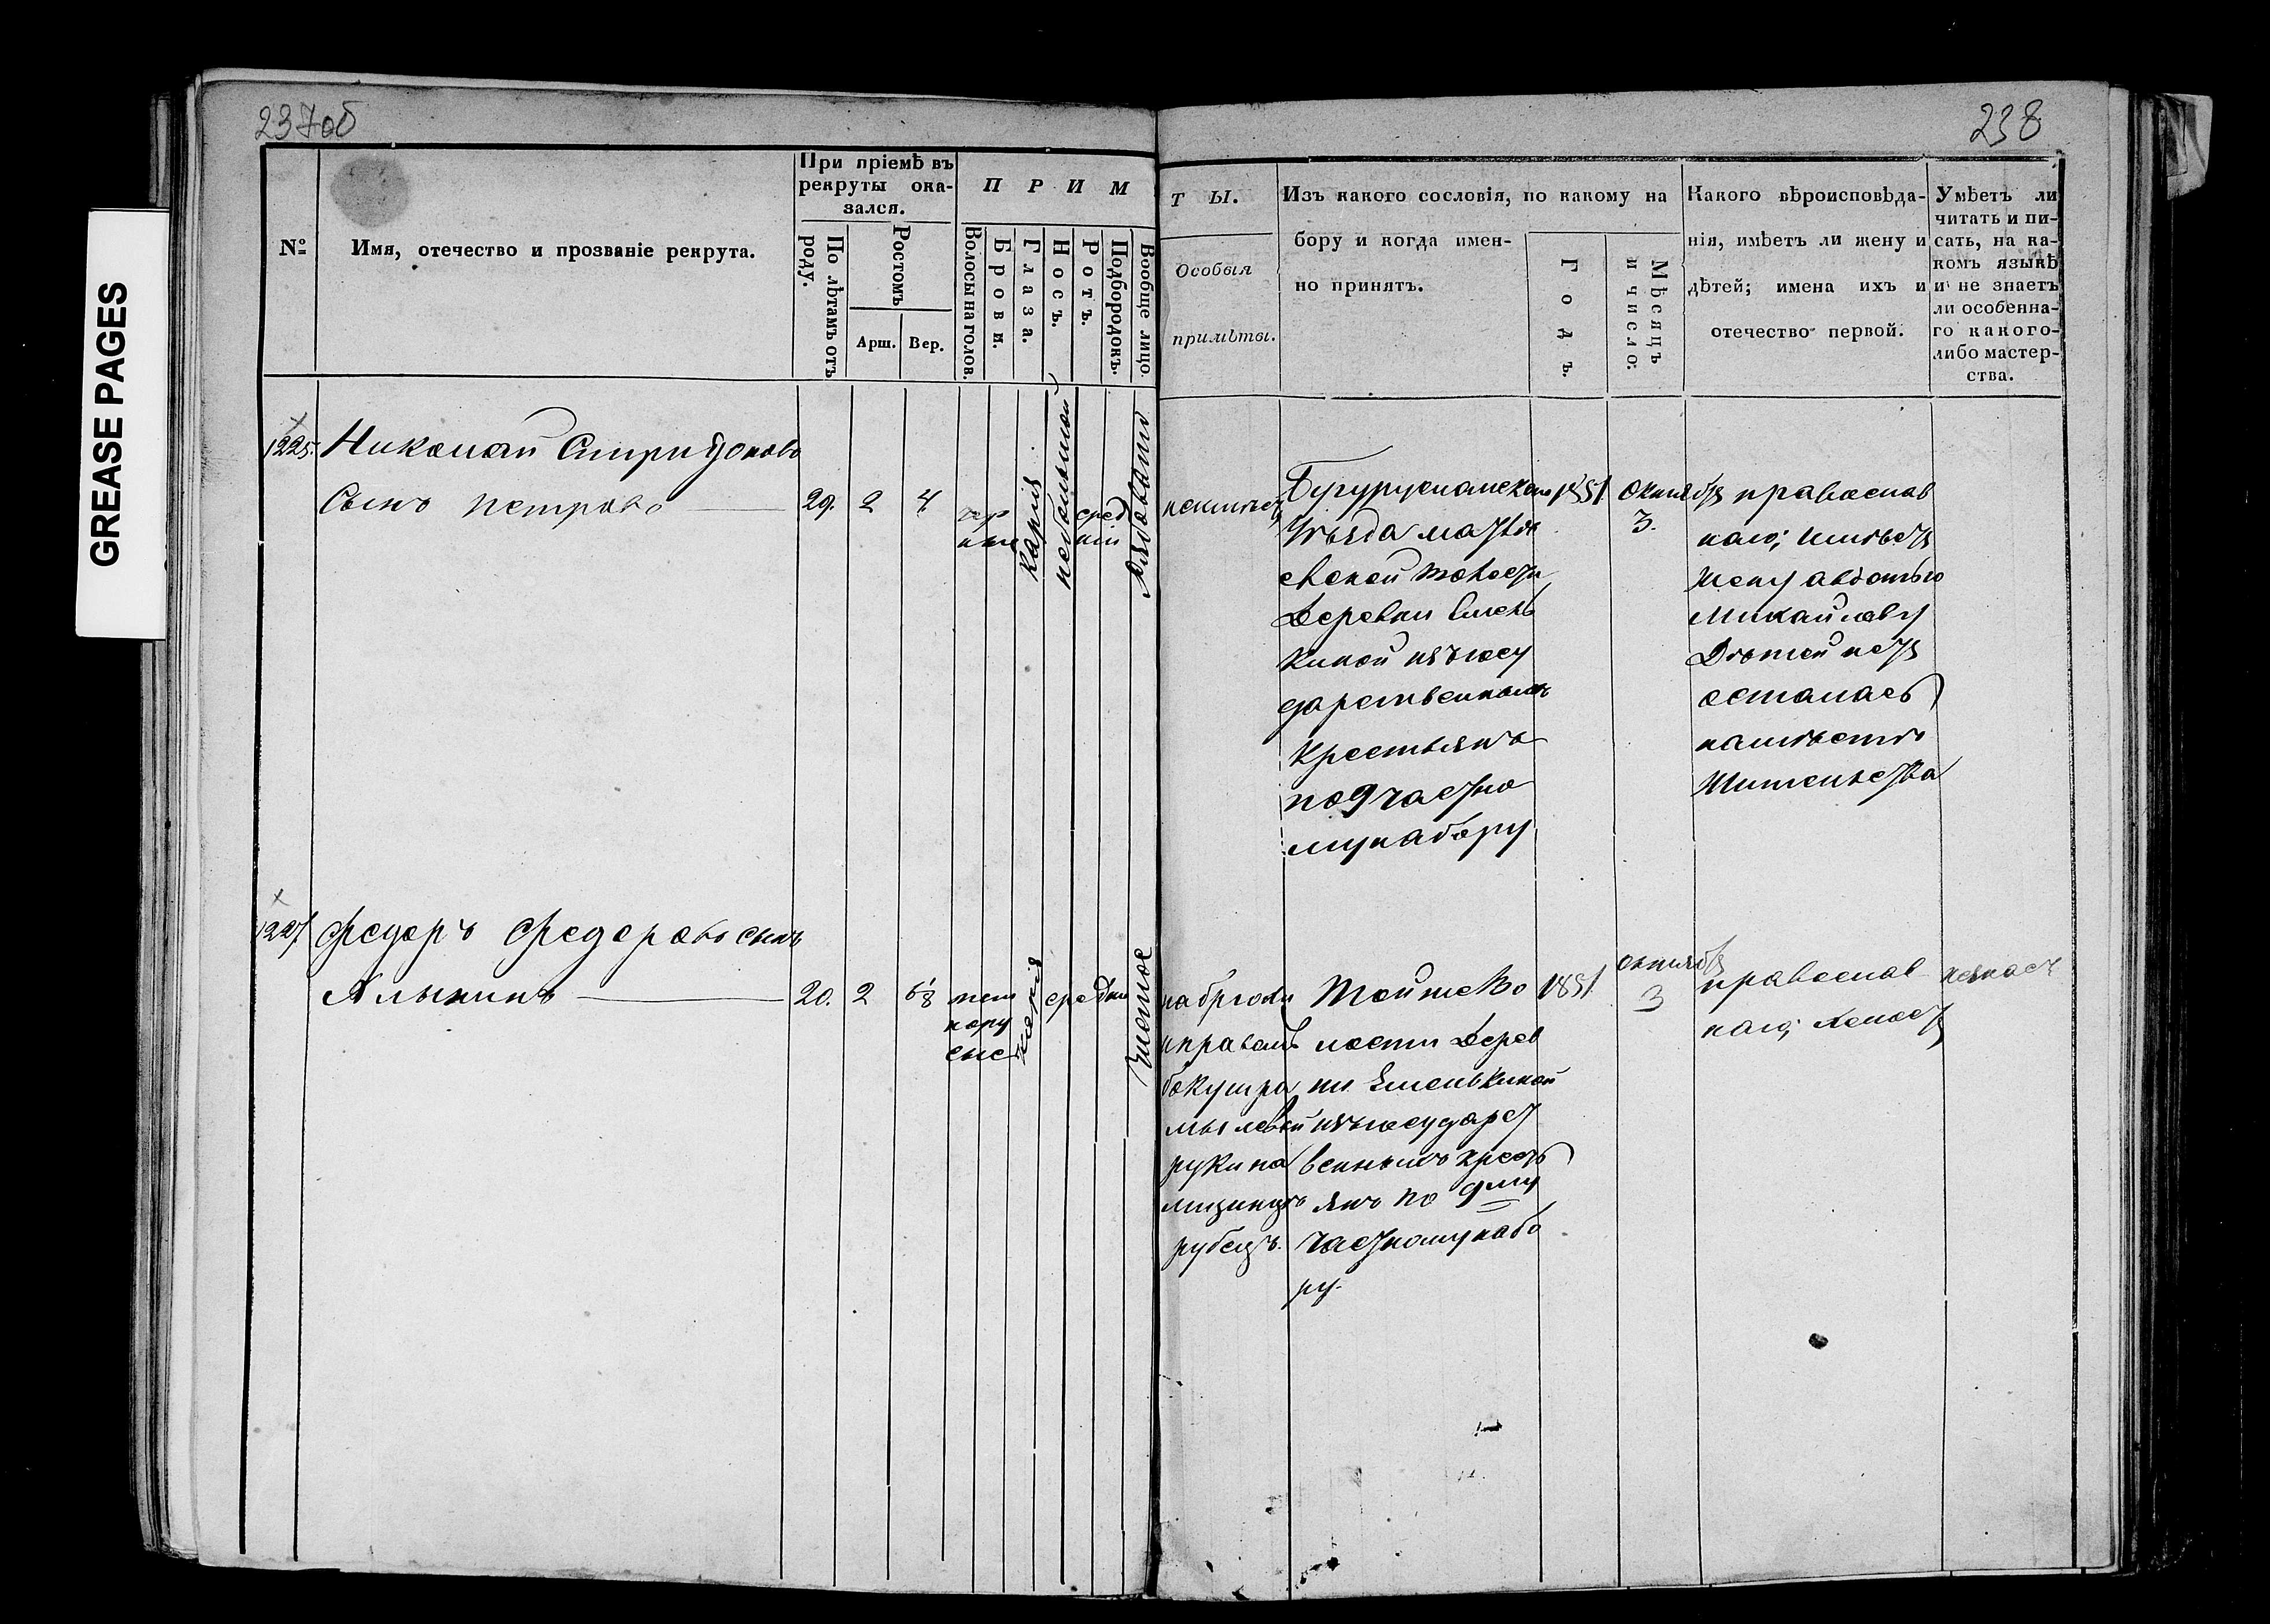 GREASE PAGES
237об
238
№
Имя, отечество и прозваніе рекрута.
При пріемѣ въ
рекруты ока-
зался.
По лѣтамъ отъ
роду.
Ростомъ
Арш.
Вер.
П Р И М
Волосы на голов.
Брови.
Глаза.
Носъ.
Ротъ.
Подбородокъ.
Вообще лицо.
Т Ы.
Особыя
примѣты.
Изъ какого сословія, по какому на
бору и когда имен-
но принятъ.
Годъ.
Мѣсяцъ
и число:
Какого вѣроисповѣда-
нія, имѣетъ ли жену и
дѣтей; имена ихъ и
отечество первой.
Умѣетъ ли
читать и пи-
сать, на ка-
комъ языкѣ
и не знаетъ
ли особенна-
го какого-
либо мастер-
ства.
1225.
Николай Спиридоновъ
Сынъ Петровъ
20.
2
4
чер
ные
карія
небольшой
сред
ній
неимѣетъ
Бугурусланскаго
Уѣзда
волости
Деревни Емель
киной изъ госу
дарственныхъ
Крестьянъ
по 9 частно
му набору
1851
Октября
3.
православ
наго; имѣетъ
Жену Авдотью
Михайлову
Дѣтей нетъ
осталась
намѣстѣ
Жительства
1227
Федоръ Федоровъ сынъ
Алыкинъ
20.
2
6/8
тем
нору
сые
карія
средній
Чистое
на брюхѣ
вправомъ
боку шра
мы левой
руки на
мизинцѣ
рубецъ.
Той же Во
лости Дерев
ни Емелькиной
изъ государст
венныхъ кресть
янъ по 9му
частному набо
ру.
1851
октября
3
православ
наго; холостъ